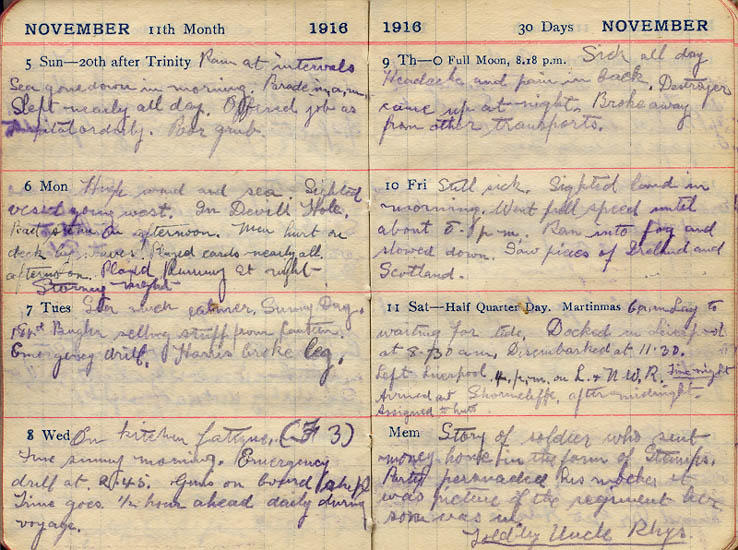 NOVEMBER 11th Month 1916
5 Sun—20th after Trinity Rain at intervals
Sea gone down in morning. Parade in a.m.
Slept nearly all day. Offered job as
orderly. Poor grub.
6 Mon High wind and sea. Sighted
vessel going west. In Devil's Hole,
afternoon. Men hurt on
deck by waves. Played cards nearly all
afternoon. Played Rummy at night.
Stormy night
7 Tues Sea much calmer. Sunny Day.
Bugler selling stuff from Canteen.
Emergency drill. Harris broke leg.
8 Wed On kitchen fatigue. (F 3)
Fine sunny morning. Emergency
drill at 2.45. Guns on board ship
Time goes 1/2 hour ahead daily during
voyage.
1916 30 Days NOVEMBER
9 Th—O Full Moon, 8.18 p.m. Sick all day
Headache and pain in back. Destroyer
came up at night. Broke away
from other transports.
10 Fri Still sick. Sighted land in
morning. Went full speed until
about 8. p.m. Ran into fog and
slowed down. Saw pieces of Ireland and
Scotland.
11 Sat—Half Quarter Day. Martinmas 6 a.m. Lay to
waiting for tide. Docked in Liverpool
at 8.30 a.m. Disembarked at 11.30.
Left Liverpool 4 p.m. on L. & N.W.R. Fine night
Arrived at Shorncliffe, after midnight.
Assigned to huts.
Mem Story of soldier who sent
money home in the form of Stamps.
Parted his mother it
was picture of the regiment her
son was in.
Told by Uncle Rhys.